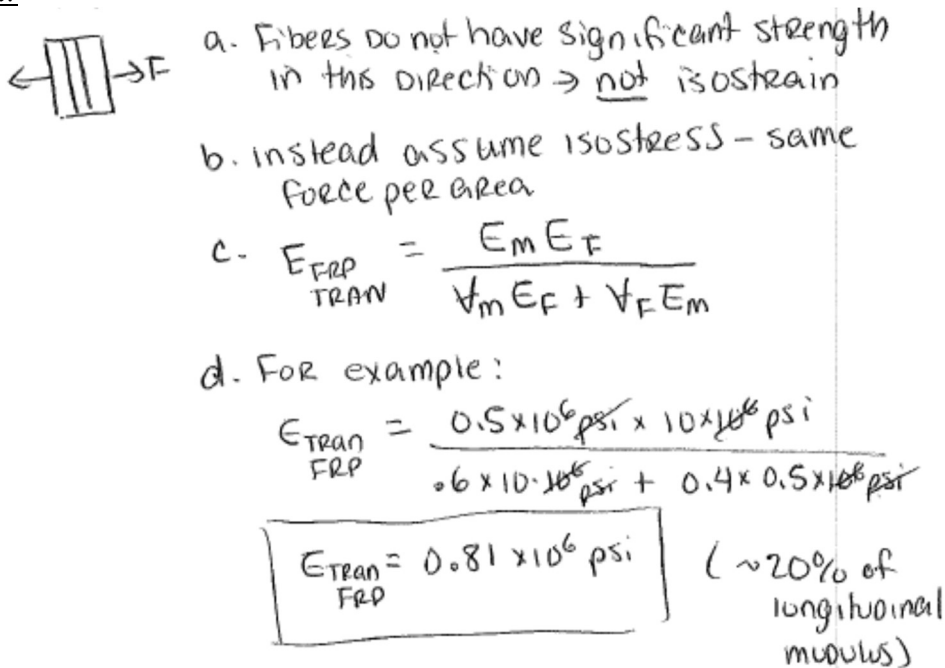 F
a. Fibers do not have significant strength
in this direction → not isostrain
b. instead assume isostress - same
force per area
c. E FRP TRAN = Em EF / (Vm EF + VF Em)
d. For example:
E Tran FRP = 0.5 x 10^6 psi x 10 x 10^6 psi / (.6 x 10·10^6 psi + 0.4 x 0.5 x 10^6 psi)
E Tran FRP = 0.81 x 10^6 psi
(~20% of
longitudinal
modulus)